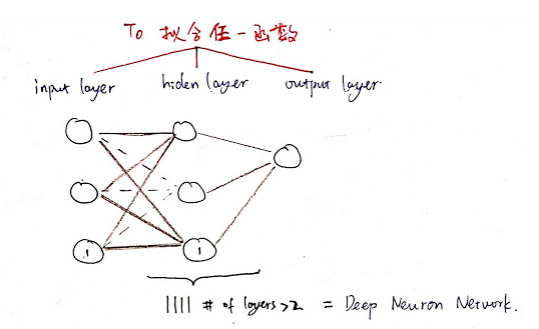 To 拟合任一函数
input layer hiden layer output layer
1 1
|||| # of layers>2 = Deep Neuron Network.